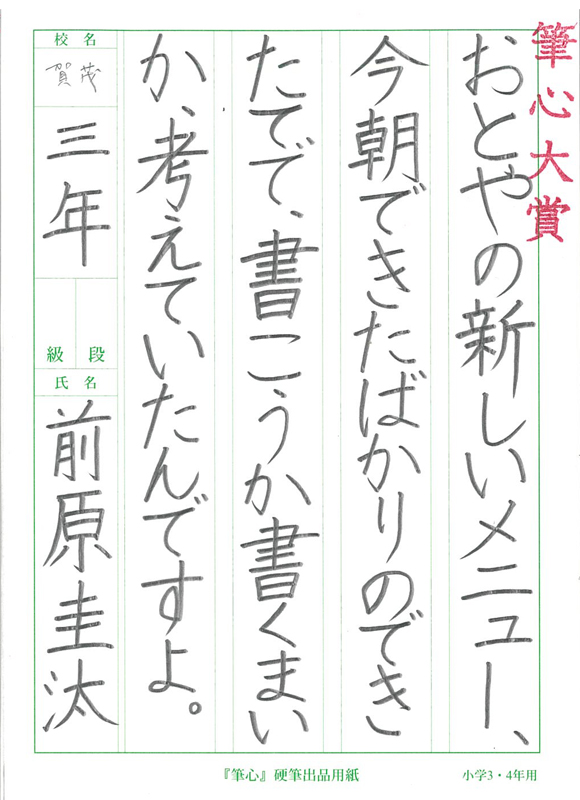 筆心大賞
おとやの新しいメニュー、
今朝できたばかりのでき
たてで、書こうか書くまい
か、考えていたんですよ。
校名
賀茂
三年
段級
氏名
前原圭汰
『筆心』硬筆出品用紙
小学3・4年用